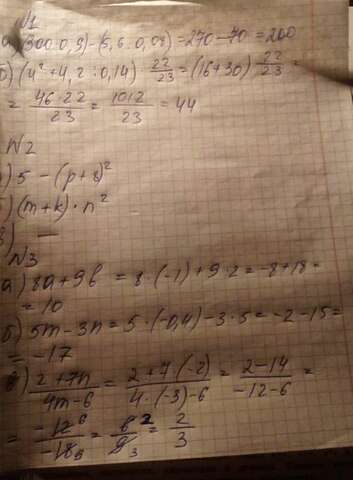 №1
а) (300·0,9)-(5,6:0,08)=270-70=200
б) (4²+4,2:0,14)·22/23=(16+30)·22/23=
=46·22/23=1012/23=44
№2
а) 5-(p+8)²
б) (m+k)·n²
в) —
№3
а) 8a+9b=8·(-1)+9·2=-8+18=
=10
б) 5m-3n=5·(-0,4)-3·5=-2-15=
=-17
в) 2+7n/4m-6=2+7·(-2)/4·(-3)-6=2-14/-12-6=
=-12 6/-18 9=6 2/9 3=2/3